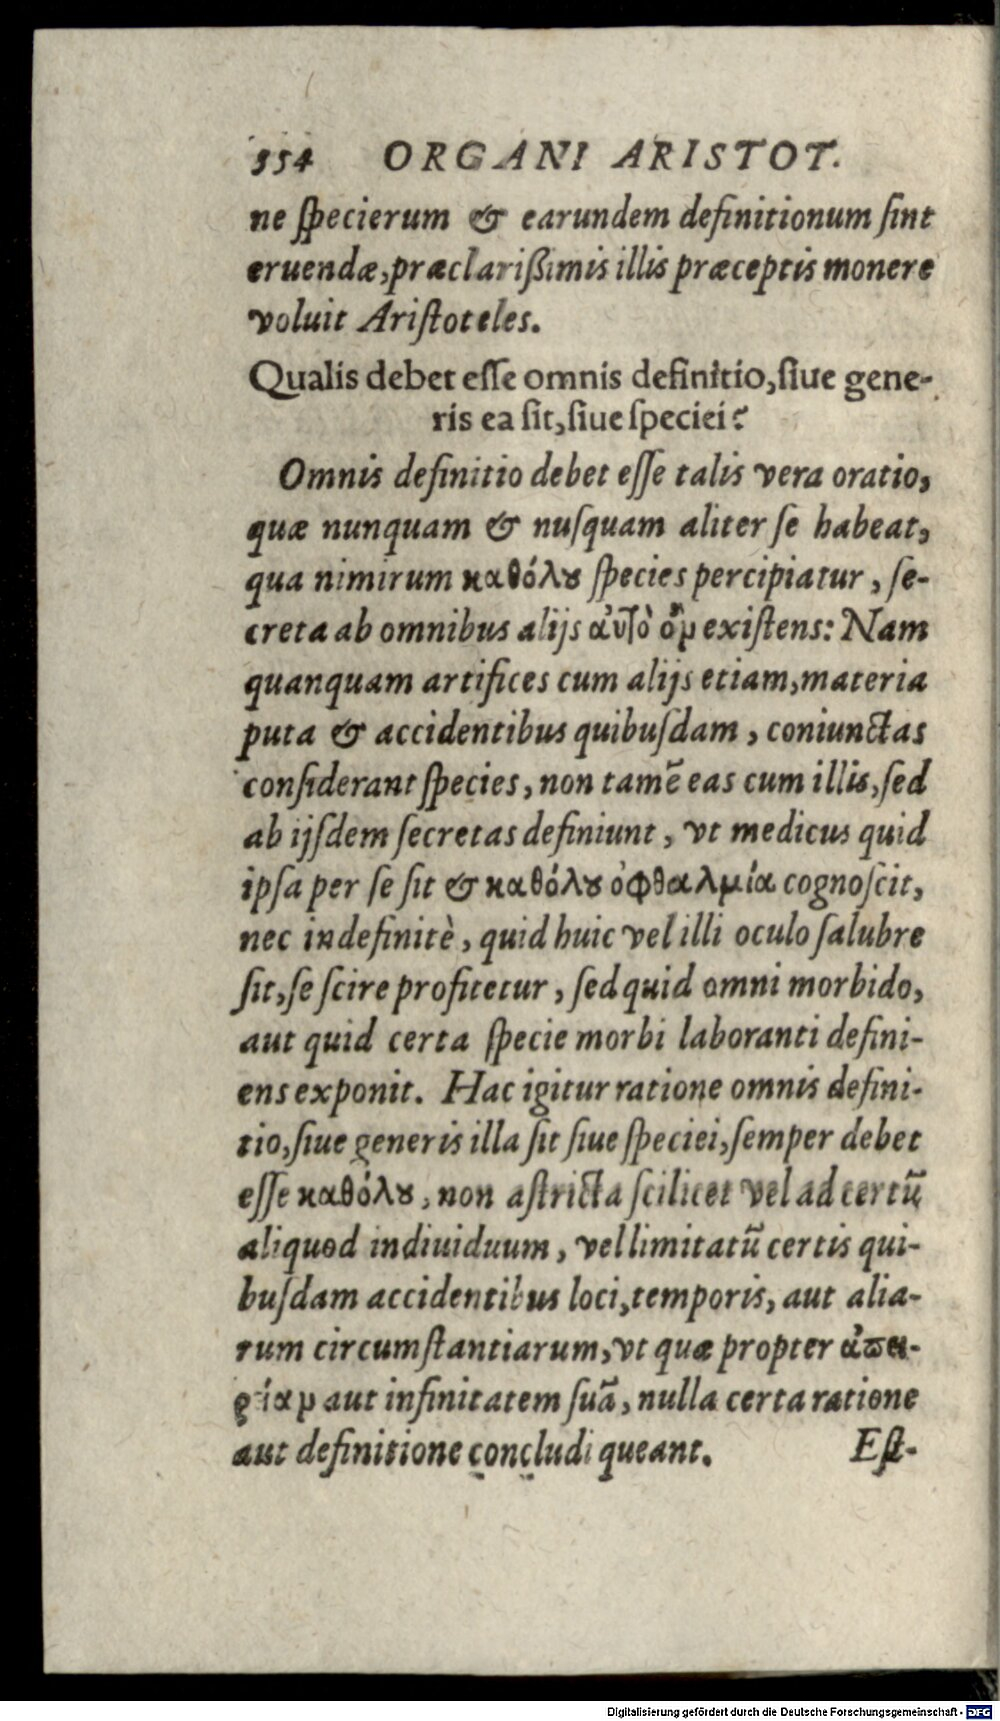 354 ORGANI ARISTOT.
ne specierum & earundem definitionum sint
eruendæ, præclarißimis illis præceptis monere
voluit Aristoteles.
Qualis debet esse omnis definitio, siue gene-
ris ea sit, siue speciei?
Omnis definitio debet esse talis vera oratio,
quæ nunquam & nusquam aliter se habeat,
qua nimirum καθόλȣ species percipiatur, se-
creta ab omnibus alijs αὐτὸ ὂν existens: Nam
quanquam artifices cum alijs etiam, materia
puta & accidentibus quibusdam, coniunctas
considerant species, non tamē eas cum illis, sed
ab ijsdem secretas definiunt, vt medicus quid
ipsa per se sit & καθόλȣ ὀφθαλμία cognoscit,
nec indefinitè, quid huic vel illi oculo salubre
sit, se scire profitetur, sed quid omni morbido,
aut quid certa specie morbi laboranti defini-
ens exponit. Hac igitur ratione omnis defini-
tio, siue generis illa sit siue speciei, semper debet
esse καθόλȣ, non astricta scilicet vel ad certū
aliquod indiuiduum, vel limitatū certis qui-
busdam accidentibus loci, temporis, aut alia-
rum circumstantiarum, vt quæ propter ἀπει-
ρίαν aut infinitatem suā, nulla certa ratione
aut definitione concludi queant. Est-
Digitalisierung gefördert durch die Deutsche Forschungsgemeinschaft - DFG